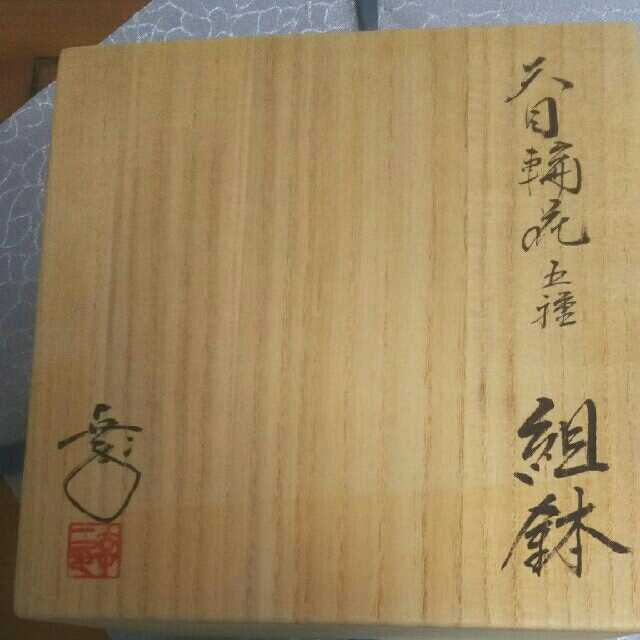 天目輪花五種
組鉢